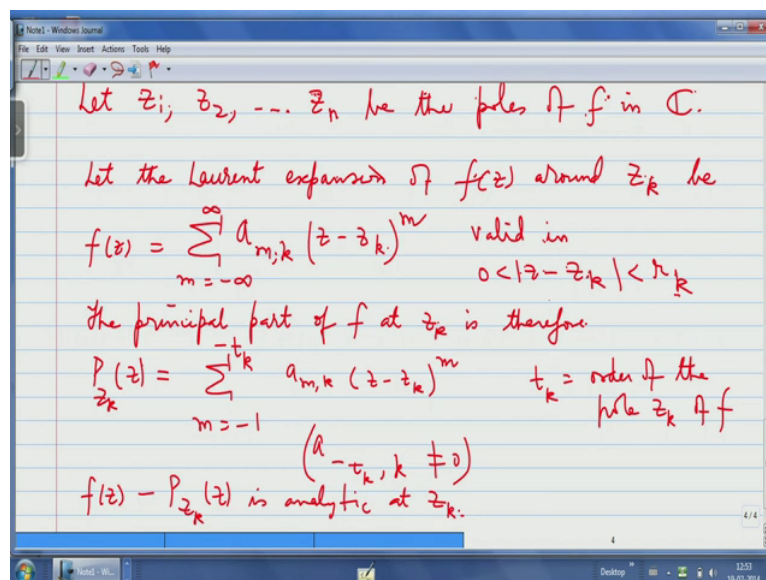 Note1 - Windows Journal
File Edit View Insert Actions Tools Help
Let z₁, z₂, ---- zₙ be the poles of f in ℂ.
Let the Laurent expansion of f(z) around z_k be
f(z) = ∑_{m=-∞}^{∞} a_{m,k} (z - z_k)^m valid in
0 < |z - z_k| < r_k
The principal part of f at z_k is therefore
P_{z_k}(z) = ∑_{m=-1}^{-t_k} a_{m,k} (z - z_k)^m t_k = order of the
pole z_k of f
(a_{-t_k, k} ≠ 0)
f(z) - P_{z_k}(z) is analytic at z_k.
4/4
4
Note1 - Win...
Desktop
12:53